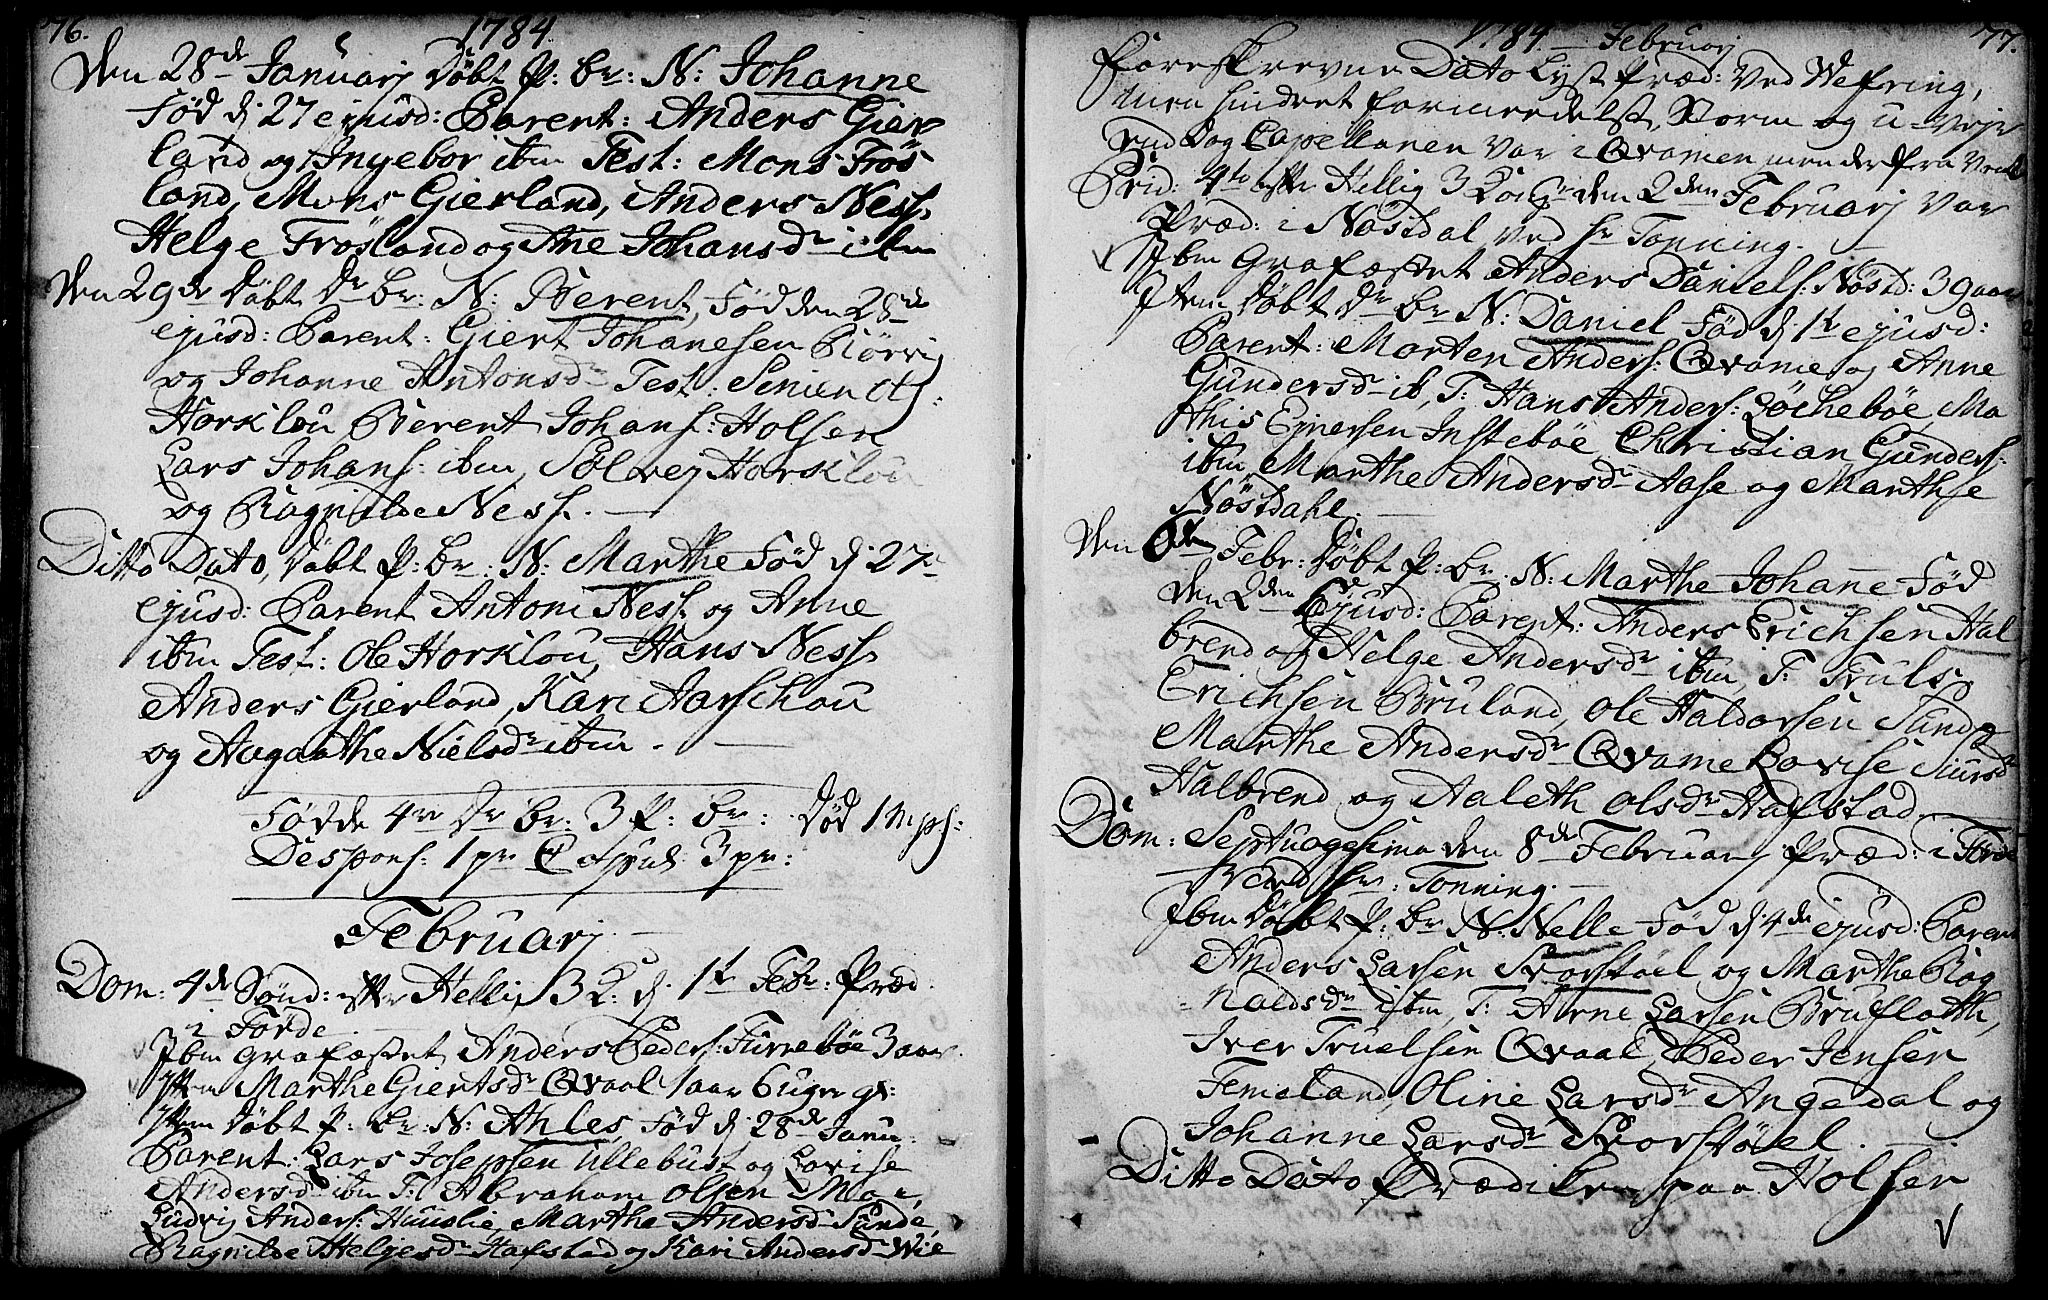 76. 1784
Den 28de Januarj Døbt P: br: N: Johanne
Fød d: 27 ejusd: Parent: Anders Gier
land og Ingebor ibm Test: Mons Frøs
land, Mons Gierland, Anders Ness,
Helge Frøsland og Ane Johansdr ibm
Den 29de Døbt Dr br: N: Berent, Fød den 28de
ejusd: Parent: Giert Johanesen Rørvig
og Johanne Antonsdr Test:
Horklou Berent Johans: Holsen
Lars Johans: ibm, Solvej Horklou
og Ragnilde Ness. —
Ditto Dato, Døbt P: br: N: Marthe Fød d: 27de
ejusd: Parent Antoni Ness og Anne
ibm Test: Ole Horklou, Hans Ness
Anders Gierland, Kari Aarschou
og Aagaathe Nielsdr ibm. —
Fødde 4re Dr br: 3 P: br: Død 1
Despons: 1 pr Copul: 3 pr:
Februarj. —
Dom: 4de Sønd: efter Hellig 3 K: d: 1te Febr: Præd:
i Førde —
Ibm Grafæstet Anders Peders: Furrebøe 3 aar.
Item Marthe Giertsdr Qvaal 1 aar 6 uger gl:
Item Døbt P: br N: Ahles Fød d: 28de Janu:
Parent: Lars Josepsen Ullebust og Lovise
Andersdr ibm T: Abraham Olsen Moe,
Ludvig Anders: Huuslie, Marthe Andersdr Sunde,
Ragnilde Helgesdr Hafstad og Kari Andersdr Wie
1784 — Februarj 77.
Foreskrevne Dato Lyst Præd: Ved Wefring,
men hindret formedelst Storm og u-Vejr
end og Capellanen Var i Qvamen men derfra
Frid: 4te efter Hellig 3 Kong: den 2den Februarj Var
Præd: i Nøstdal ved Hr Tonning. —
Ibm Grafæstet Anders Daniels: Nøstd: 39 aar
Item Døbt Dr br N: Daniel Fød d: 1te ejusd:
Parent: Morten Anders: Qvame og Anne
Gundersdr ib, T: Hans Anders: Løchebøe, Ma
this Ejnersen Instebøe, Christian Gunders:
ibm, Marthe Andersdr Aase og Marthe
Nøstdahl. —
Den 6te Febr: Døbt P: br: N: Marthe Johane Fød
den 2den Ejusd: Parent: Anders Erichsen Hal
brend og Helge Andersdr ibm, T: Truls
Erichsen Bruland, Ole Haldorsen Sunde
Marthe Andersdr Qvame Lovise Siursdr
Halbrend og Aaleth Olsdr Hafstad. —
Dom: Septuagesima den 8de Februarj Præd: i Førde
ved Hr: Tonning. —
Ibm Døbt P: br N: Nelle Fød d: 4de ejusd: Parent
Anders Larsen Svorstøel og Marthe Rag
naldsdr ibm, T: Arne Larsen Bruflath,
Iver Truelsen Qvaal, Peder Jensen
Femeland, Oline Larsdr Angedal og
Johanne Larsdr Svorstøel. —
Ditto Dato Prædiken paa Holsen